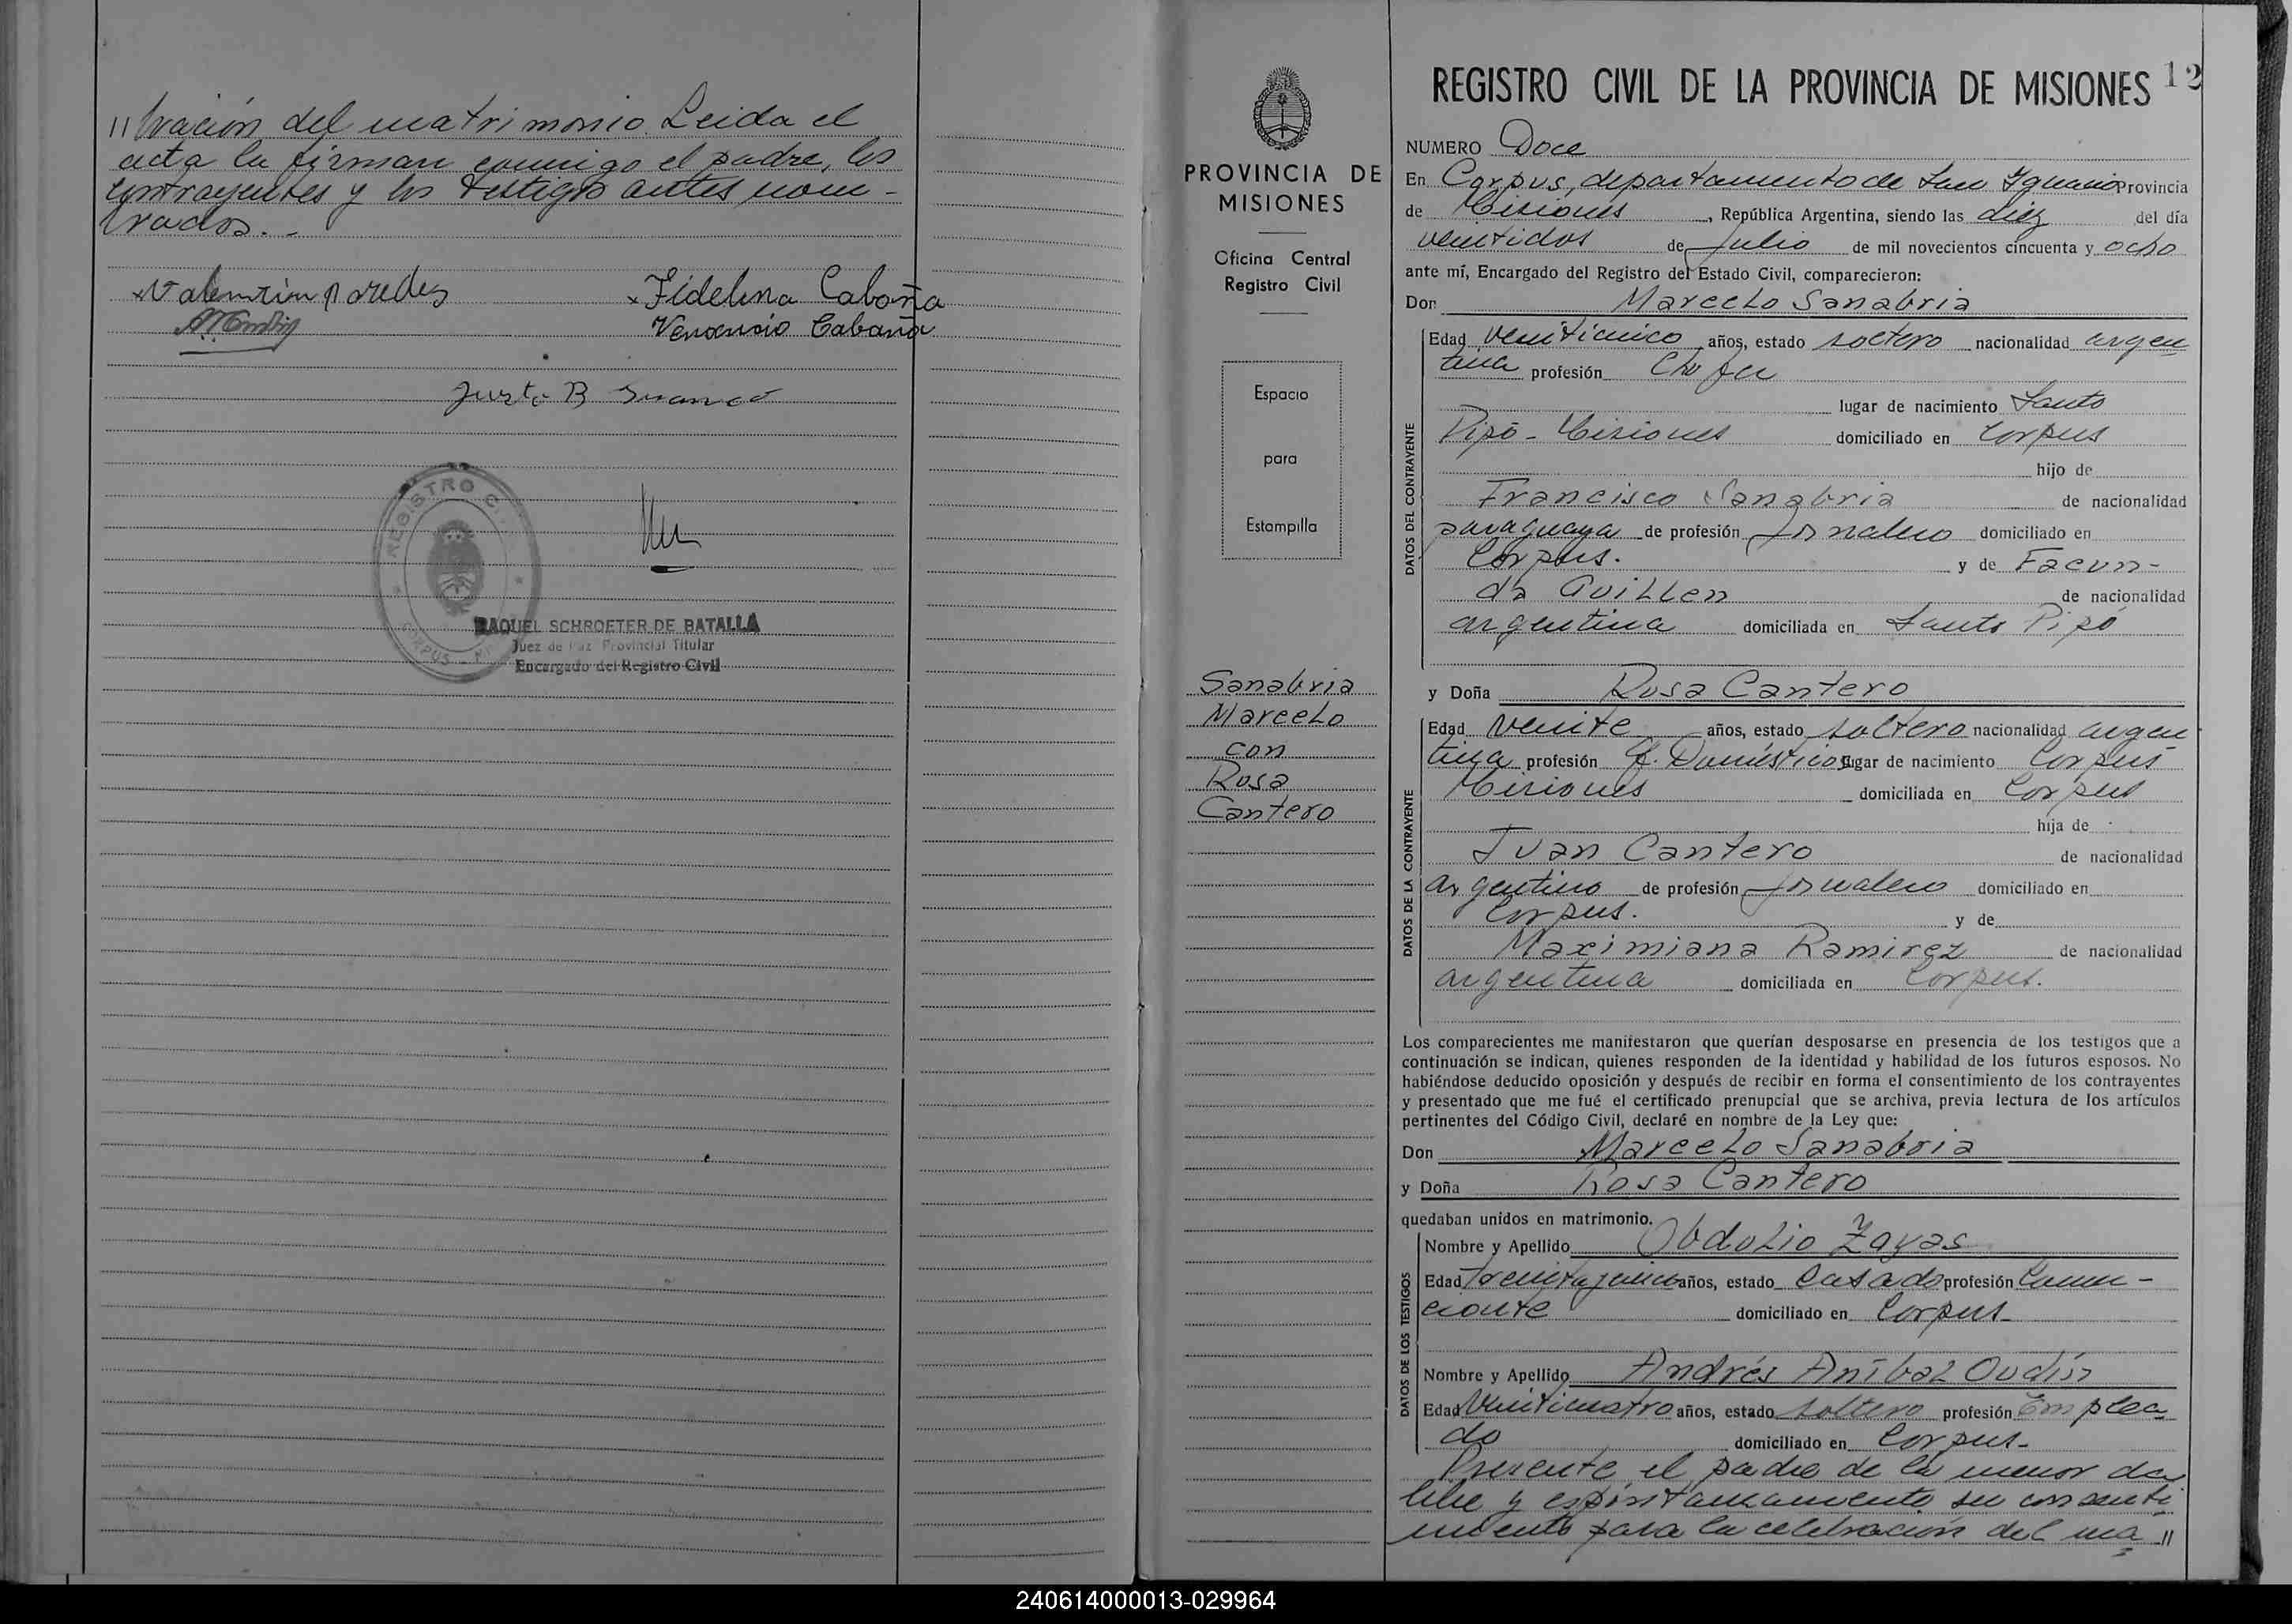 // bración del matrimonio. Leida el
acta la firman conmigo el padre, los
contrayentes y los testigos antes nom-
brados.-
Valentin Paredes
Fidelina Cabaña
Venancio Cabaña
Justo B
REGISTRO C.
CORPUS
RAQUEL SCHROETER DE BATALLA
Juez de Paz Provincial Titular
Encargado del Registro Civil
PROVINCIA DE
MISIONES
Oficina Central
Registro Civil
Espacio
para
Estampilla
Sanabria
Marcelo
con
Rosa
Cantero
REGISTRO CIVIL DE LA PROVINCIA DE MISIONES 12
NUMERO Doce
En Corpus, departamento de San Ignacio Provincia
de Misiones, República Argentina, siendo las diez del día
veintidos de Julio de mil novecientos cincuenta y ocho
ante mí, Encargado del Registro del Estado Civil, comparecieron:
Don Marcelo Sanabria
DATOS DEL CONTRAYENTE
Edad veinticinco años, estado soltero nacionalidad argen
tina profesión Chofer
lugar de nacimiento Santo
Pipó - Misiones domiciliado en Corpus
hijo de
Francisco Sanabria de nacionalidad
paraguaya de profesión Jornalero domiciliado en
Corpus. y de Facun-
da Guillen de nacionalidad
argentina domiciliada en Santo Pipó
y Doña Rosa Cantero
DATOS DE LA CONTRAYENTE
Edad veinte años, estado soltera nacionalidad argen
tina profesión Q. Domésticos lugar de nacimiento Corpus
Misiones domiciliada en Corpus
hija de
Juan Cantero de nacionalidad
argentino de profesión Jornalero domiciliado en
Corpus. y de
Maximiana Ramirez de nacionalidad
argentina domiciliada en Corpus.
Los comparecientes me manifestaron que querían desposarse en presencia de los testigos que a
continuación se indican, quienes responden de la identidad y habilidad de los futuros esposos. No
habiéndose deducido oposición y después de recibir en forma el consentimiento de los contrayentes
y presentado que me fué el certificado prenupcial que se archiva, previa lectura de los artículos
pertinentes del Código Civil, declaré en nombre de la Ley que:
Don Marcelo Sanabria
y Doña Rosa Cantero
quedaban unidos en matrimonio.
DATOS DE LOS TESTIGOS
Nombre y Apellido Obdulio Zayas
Edad Treintaycinco años, estado Casado profesión Comer-
ciante domiciliado en Corpus
Nombre y Apellido Andrés Aníbal Oudín
Edad Veinticuatro años, estado soltero profesión Emplea
do domiciliado en Corpus-
Presente el padre de la menor da
libre y espontaneamente su consenti
miento para la celebración del ma //
240614000013-029964